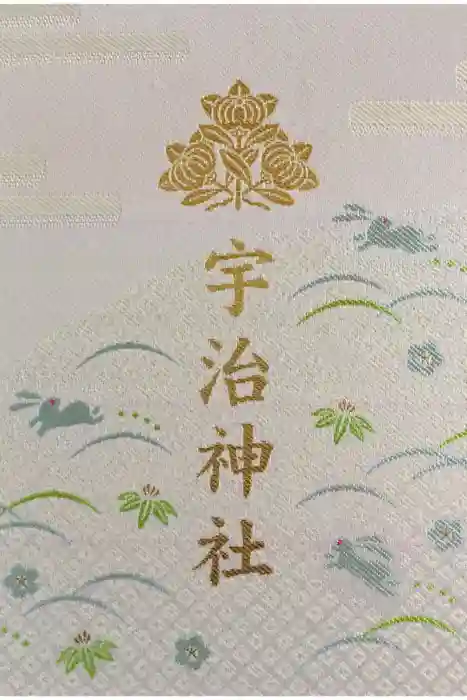 宇治神社